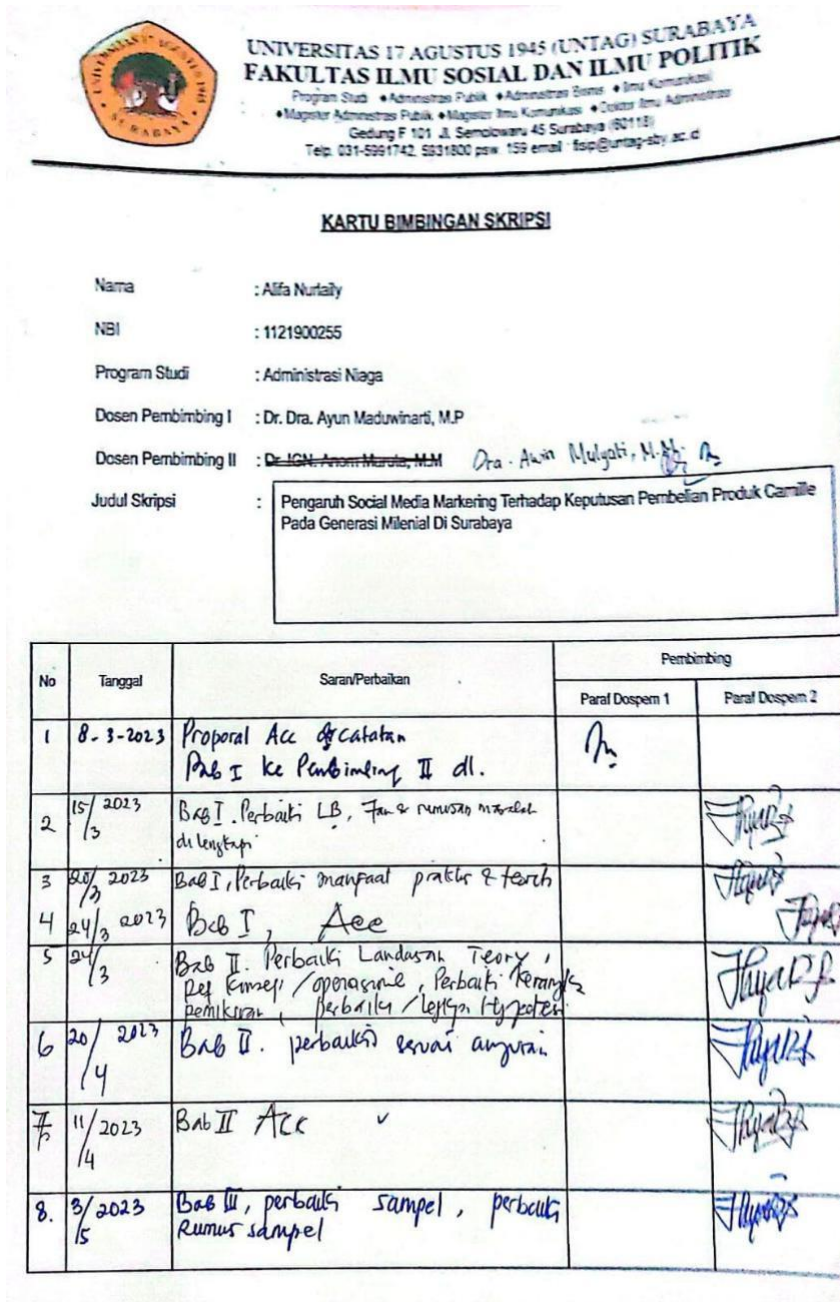 UNIVERSITAS 17 AGUSTUS 1945
SURABAYA
UNIVERSITAS 17 AGUSTUS 1945 (UNTAG) SURABAYA
FAKULTAS ILMU SOSIAL DAN ILMU POLITIK
Program Studi ♦Administrasi Publik ♦Administrasi Bisnis ♦Ilmu Komunikasi
♦Magister Administrasi Publik ♦Magister Ilmu Komunikasi ♦Doktor Ilmu Administrasi
Gedung F 101 Jl. Semolowaru 45 Surabaya (60118)
Telp. 031-5991742, 5931800 psw. 159 email : fisip@untag-sby.ac.id
KARTU BIMBINGAN SKRIPSI
Nama : Alifa Nurlaily
NBI : 1121900255
Program Studi : Administrasi Niaga
Dosen Pembimbing I : Dr. Dra. Ayun Maduwinarti, M.P
Dosen Pembimbing II : Dr. IGN. Anom Maruta, M.M Dra. Awin Mulyati, M.M.
Judul Skripsi : Pengaruh Social Media Markering Terhadap Keputusan Pembelian Produk Camille
Pada Generasi Milenial Di Surabaya
No Tanggal Saran/Perbaikan Pembimbing
Paraf Dospem 1 Paraf Dospem 2
1 8-3-2023 Proposal Acc catatan
Bab I ke Pembimbing II dl.
2 15/3 2023 Bab I. Perbaiki LB, rumusan masalah
di lengkapi
3 20/3 2023 Bab I, Perbaiki manfaat praktis &
4 24/3 2023 Bab I, Acc
5 24/3 Bab II. Perbaiki Landasan Teory,
Def konsep/operasional, Perbaiki Kerangka
pemikiran, perbaiki
6 20/4 2023 Bab II. perbaiki sesuai anjuran
7 11/4 2023 Bab II Acc
8. 3/5 2023 Bab III, perbaiki sampel, perbaiki
Rumus sampel